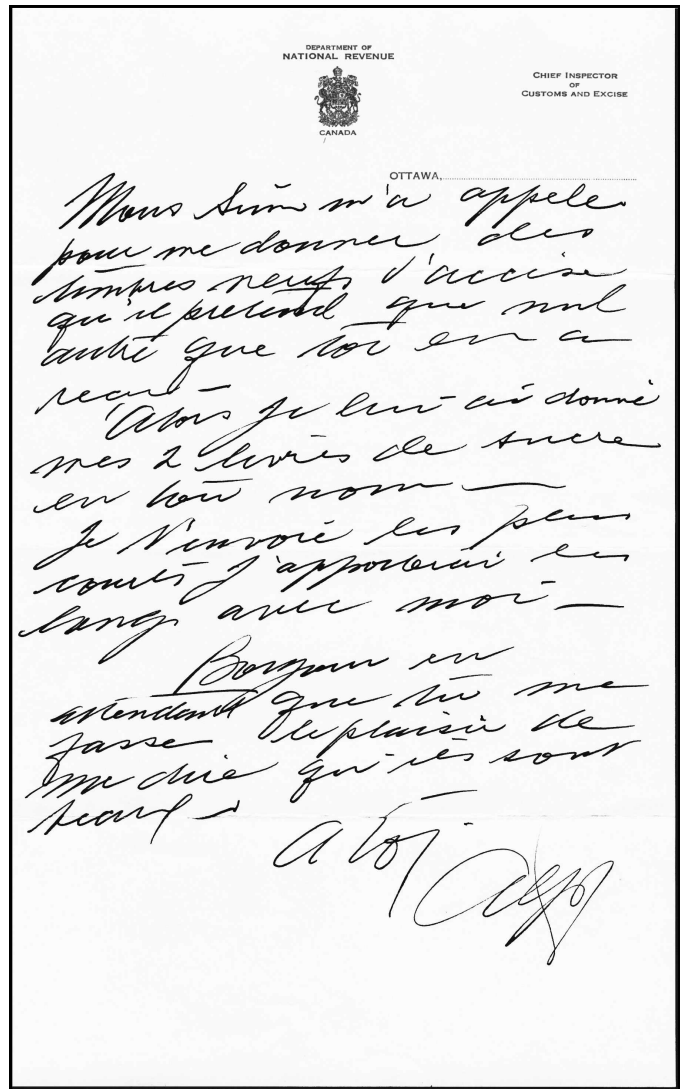 DEPARTMENT OF
NATIONAL REVENUE
CANADA
CHIEF INSPECTOR
OF
CUSTOMS AND EXCISE
OTTAWA,
Mons Sim m'a appele
pour me donner des
timbres neufs d'accise
qu'il pretend que nul
autre que toi en a
recu —
Alors je lui ai donné
mes 2 livres de sucre
en ton nom —
Je t'envoie les plus
courts j'apporterai les
longs avec moi —
Bonjour en
attendant que tu me
fasse le plaisir de
me dire qu'ils sont
beaux
a toi